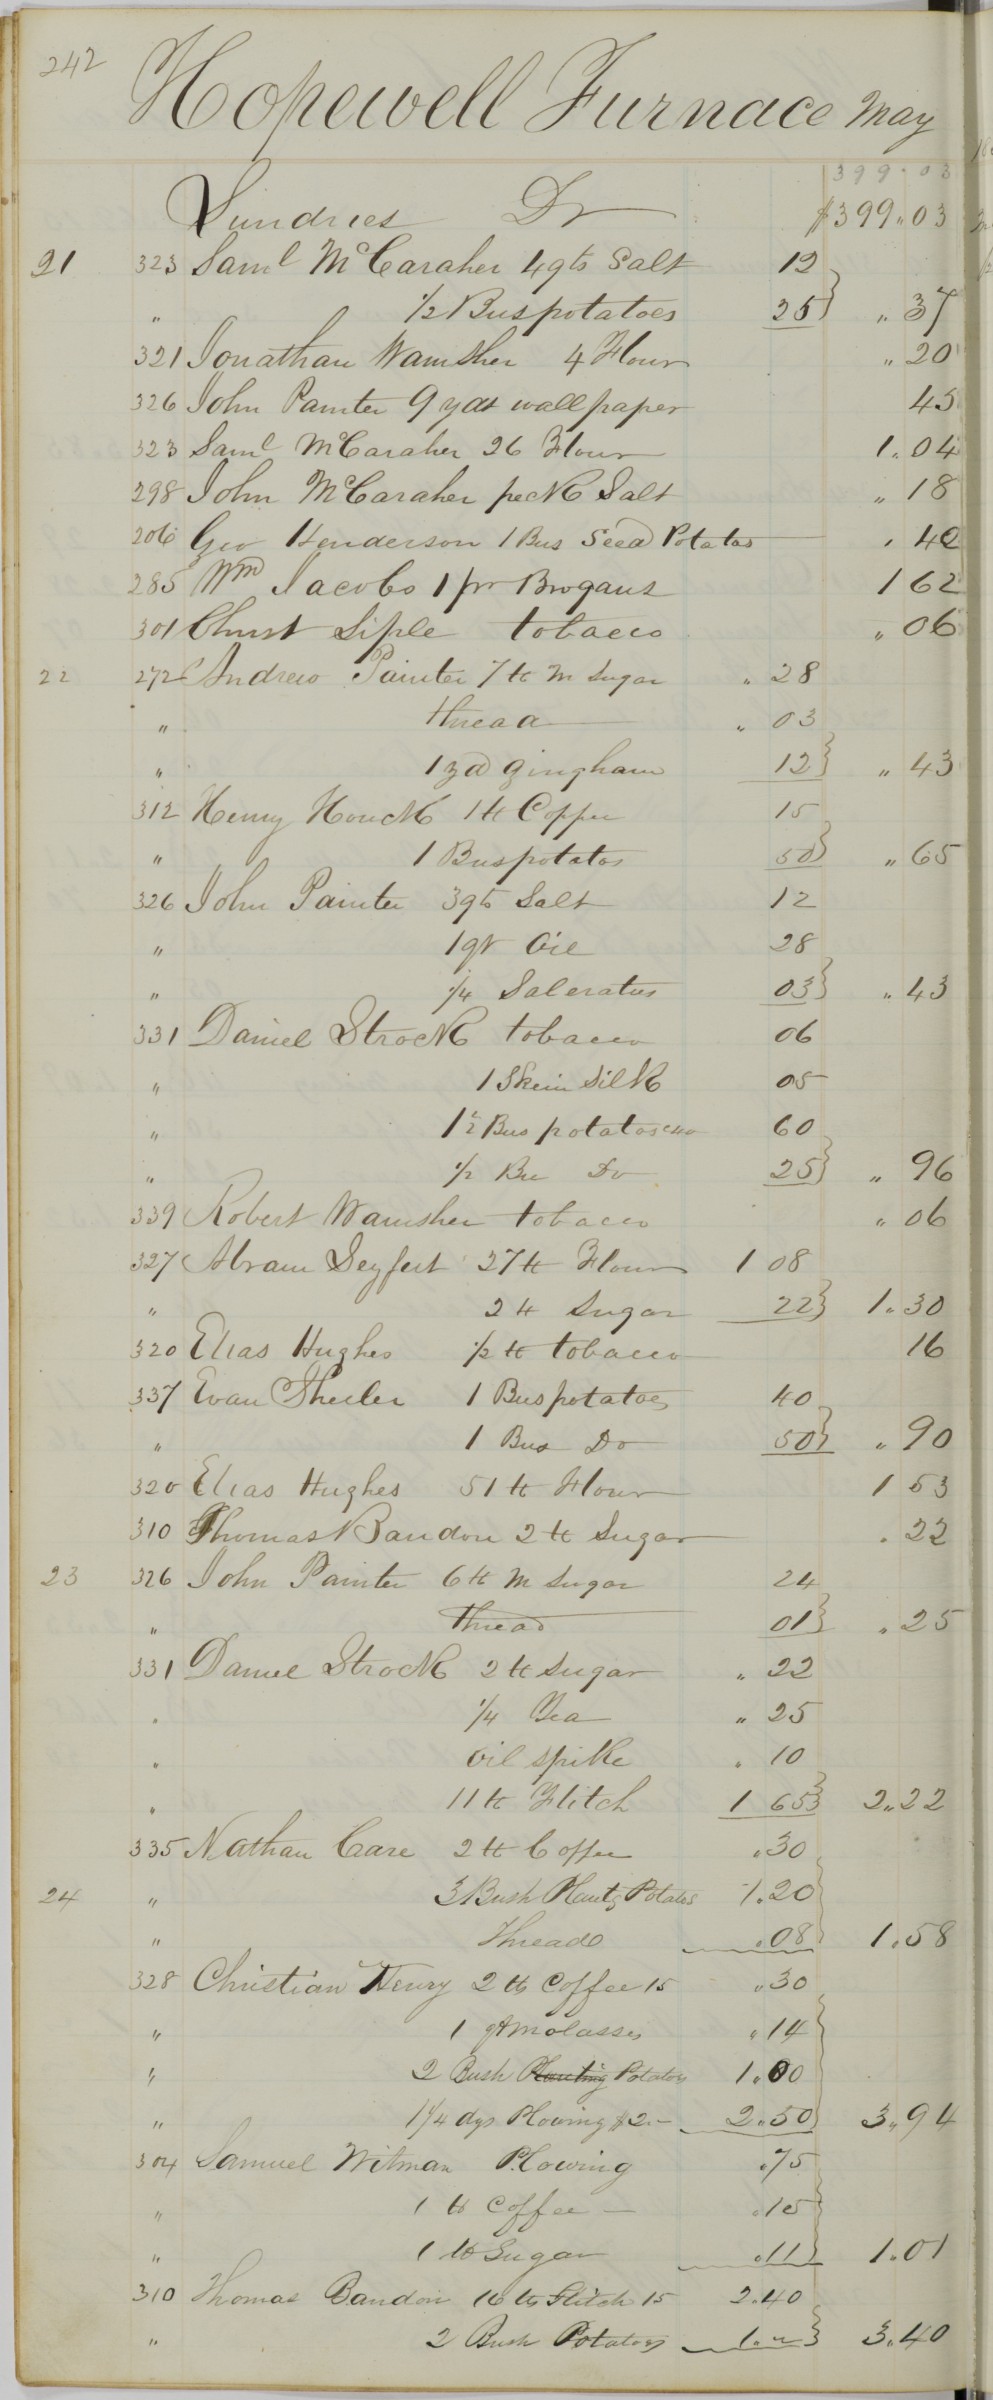 242
Hopewell Furnace May
399.03
Sundries Dr $399.03
21 323 Saml McCaraher 4 qts Salt 12
" 1/2 Bus potatoes 25 " 37
321 Jonathan Wamsher 4 Flour " 20
326 John Painter 9 yds wall paper 45
323 Saml McCaraher 26 Flour 1.04
298 John McCaraher peck Salt " 18
206 Geo Henderson 1 Bus Seed Potatos . 40
285 Wm Jacobs 1 pr Brogans 1 62
301 Christ Siple tobacco " 06
22 272 Andrew Painter 7 lb M Sugar " 28
" thread " 03
" 1 yd gingham 12 " 43
312 Henry Houck 1 lb Coffee 15
" 1 Bus potatos 50 " 65
326 John Painter 3 qts Salt 12
" 1 qt Oil 28
" 1/4 Saleratus 03 " 43
331 Daniel Strock tobacco 06
" 1 Skein Silk 05
" 1 1/2 Bus potatos 40 60
" 1/2 Bu Do 25 " 96
339 Robert Wamsher tobacco " 06
327 Abram Seyfert 27 lb Flour 1 08
" 2 lb Sugar 22 1.30
320 Elias Hughes 1/2 lb tobacco 16
337 Evan Sheeler 1 Bus potatoes 40
" 1 Bus Do 50 " 90
320 Elias Hughes 51 lb Flour 1 53
310 Thomas Bandon 2 lb Sugar . 22
23 326 John Painter 6 lb M Sugar 24
" thread 01 " 25
331 Daniel Strock 2 lb Sugar " 22
" 1/4 Tea " 25
" oil spike " 10
" 11 lb Flitch 1 65 2.22
335 Nathan Care 2 lb Coffee .30
24 " 3 Bush Plantg Potatos 1.20
" Thread .08 1.58
328 Christian Henry 2 lb Coffee 15 " 30
" 1 qt Molasses " 14
" 2 Bush Planting Potatos 1.00
" 1 1/4 dys Plowing $2.- 2.50 3.94
304 Samuel Witman Plowing .75
" 1 lb Coffee .15
" 1 lb Sugar .11 1.01
310 Thomas Bandon 16 lb Flitch 15 2.40
" 2 Bush Potatos 1. " 3.40